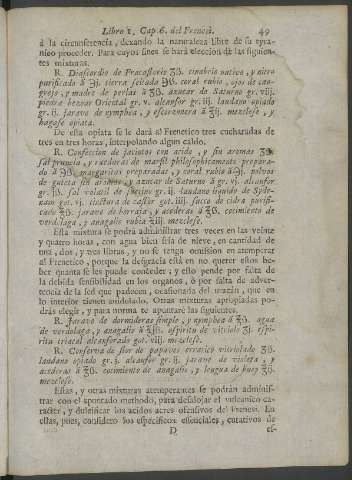 Libro I. Cap. 6. del Frenesì. 49
à la circunferencia, dexando la naturaleza libre de su tyra-
nico proceder. Para cuyos fines se harà eleccion de las siguien-
tes mixturas.
R. Diascordio de Fracastorio ʒß. cinabrio nativo, y nitro
purificado à ℈j. tierra sellada ℈ß. coral rubio, ojos de can-
grejo, y madre de perlas à ʒß. azucar de Saturno gr. viij.
piedra bezoar Oriental gr. v. alcanfor gr. iij. laudano opiado
gr. ij. jarave de nymphea, y escorzonera à ℥ij. mezclese, y
hagase opiata.
De esta opiata se le darà al Frenetico tres cucharadas de
tres en tres horas, interpolando algun caldo.
R. Confeccion de jacintos con acido, y sin aromas ʒß.
sal prunela, y raeduras de marfil philosophicamente prepara-
do à ℈ß. margaritas preparadas, y coral rubio à ℈j. polvos
de guteta sin aromas, y azucar de Saturno à gr. vj. alcanfor
gr. iiß. sal volatil de succino gr. ij. laudano liquido de Syde-
nam got. vj. tinctura de castor got. iiij. succo de cidra purifi-
cado ℥ß. jarave de borraja, y acederas à ℥ß. cocimiento de
verdolaga, y anagalis rubia ℥iij. mezclese.
Esta mixtura se podrà administrar tres veces en las veinte
y quatro horas, con agua bien fria de nieve, en cantidad de
una, dos, y tres libras, y no se tenga omision en atemperar
al Frenetico, porque la desgracia està en no querer estos be-
ber quanta se les puede conceder; y esto pende por falta de
la debida sensibilidad en los organos, ò por falta de adver-
tencia de la sed que padecen, ocasionada del orazin, que en
lo interior tienen undulado. Otras mixturas apropiadas po-
dràs elegir, y para norma te apuntarè las siguientes.
R. Jarave de dormideras simple, y nymphea à ℥ß. agua
de verdolaga, y anagalis à ℥iß. espiritu de vitriolo ʒj. espi-
ritu triacal alcanforado got. viij. mezclese.
R. Conserva de flor de papaver erratico vitriolada ʒß.
laudano opiado gr. ij. alcanfor gr. ij. jarave de violeta, y
acederas à ℥ß. cocimiento de anagalis, y lengua de buey ℥ij.
mezclese.
Estas, y otras mixturas atemperantes se podràn adminis-
trar con el apuntado methodo, para desalojar el vulcanico ca-
racter, y dulcificar los acidos acres ofensivos del Frenesì. En
ellas, pues, considero los especificos esenciales, curativos de
D es-